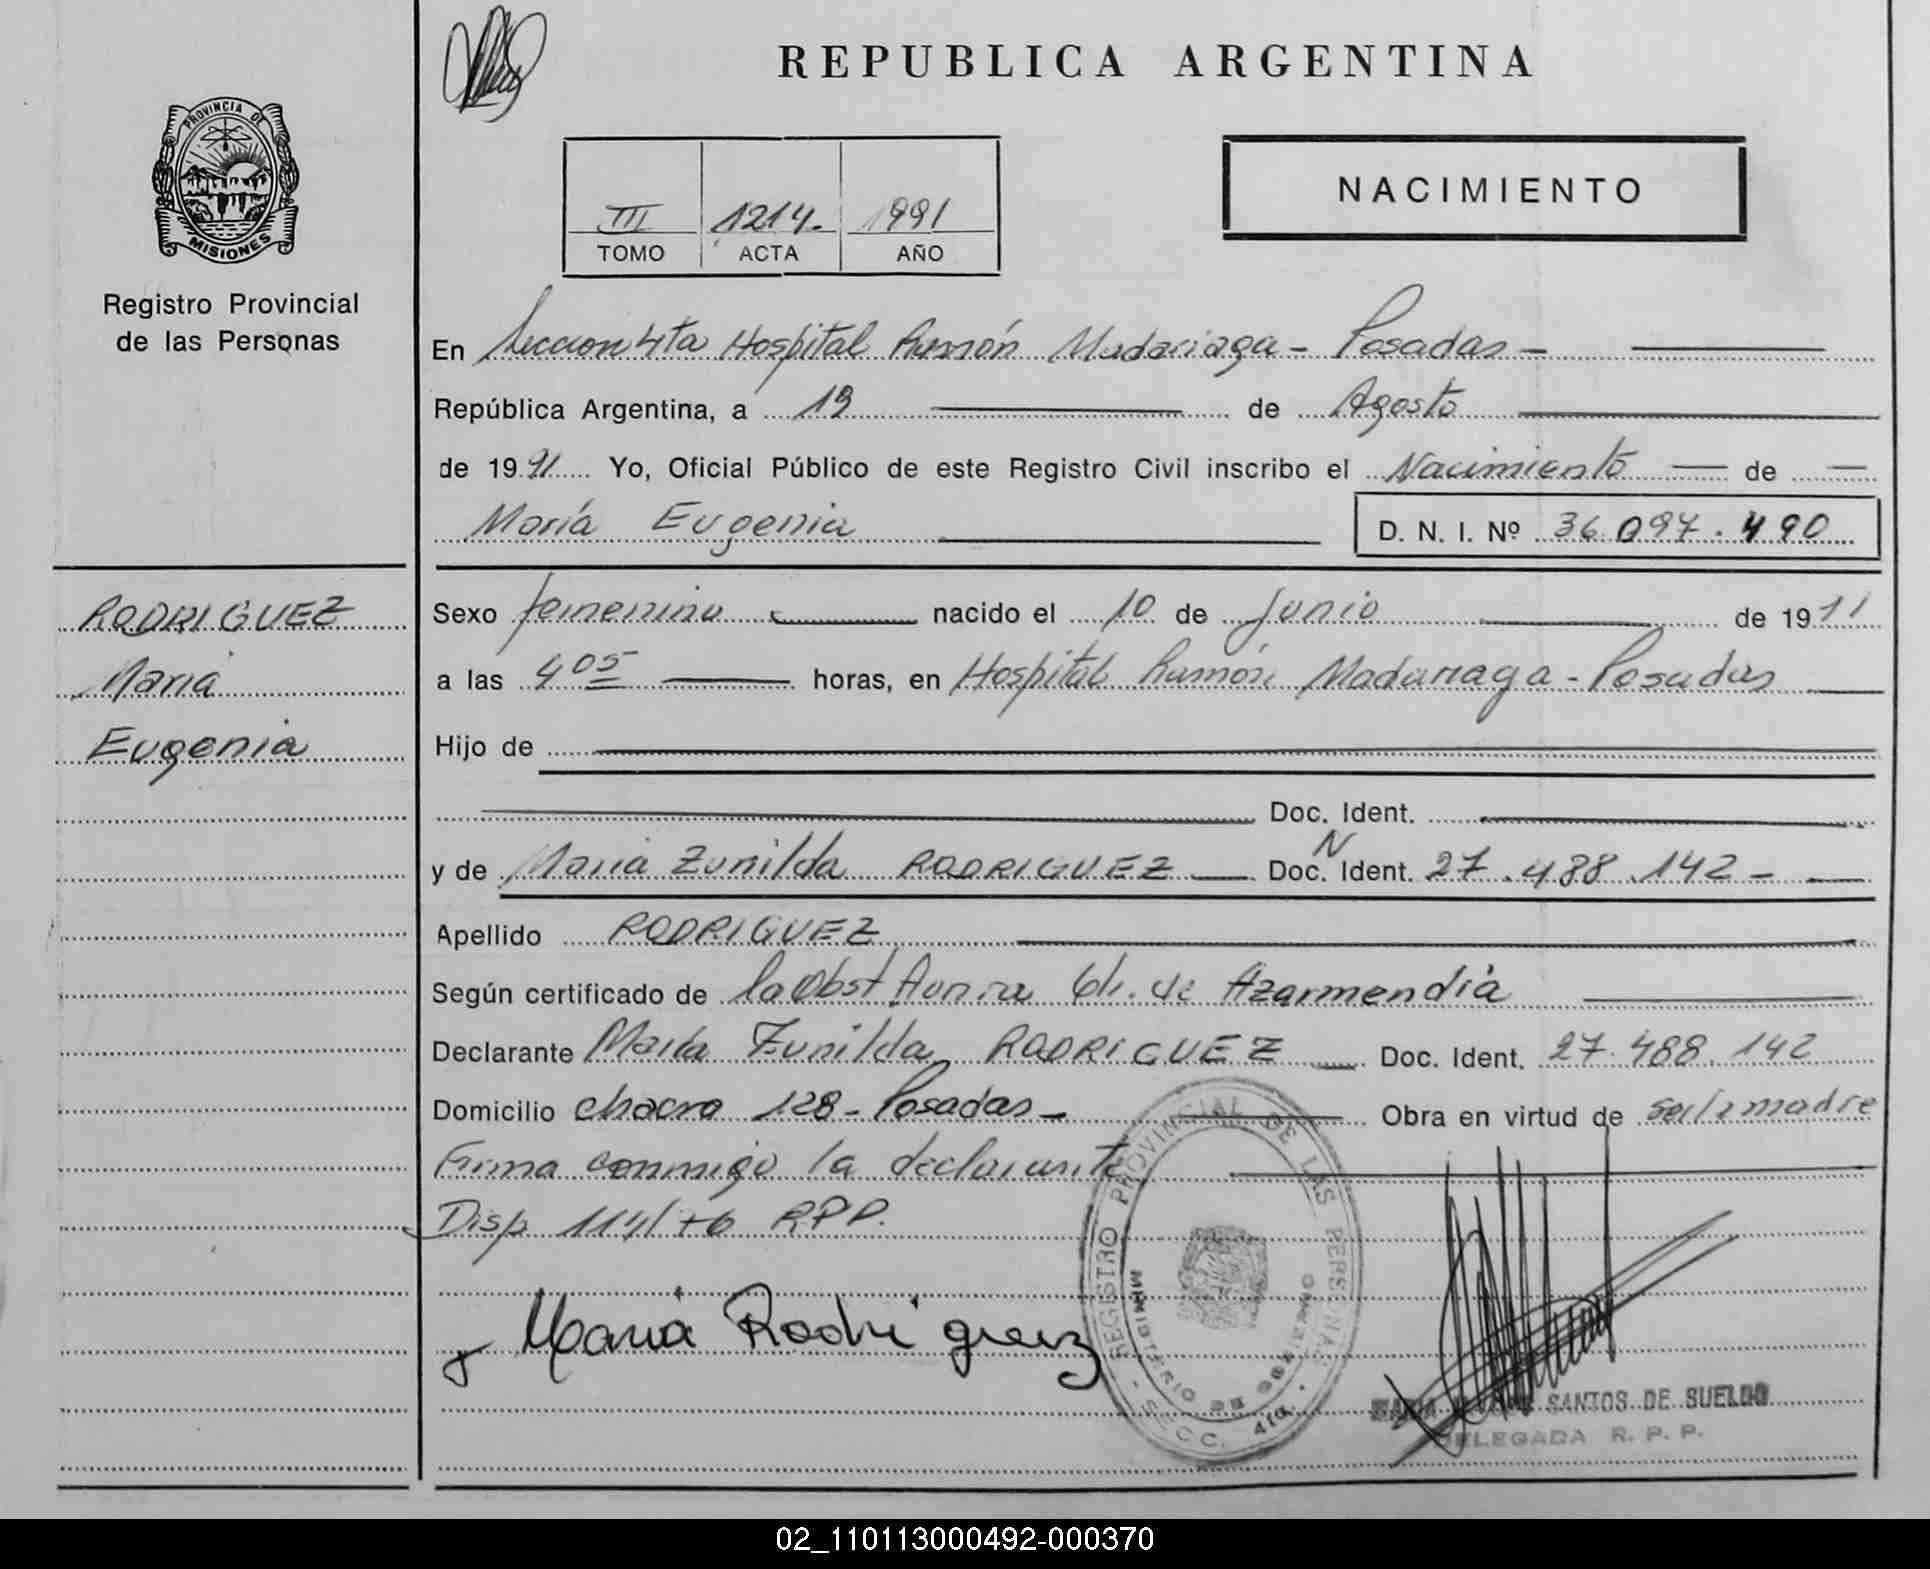 REPUBLICA ARGENTINA
PROVINCIA DE MISIONES
Registro Provincial
de las Personas
NACIMIENTO
III 1214. 1991
TOMO ACTA AÑO
En Seccion 4ta Hospital Ramón Madariaga - Posadas -
República Argentina, a 19 de Agosto
de 1991 Yo, Oficial Público de este Registro Civil inscribo el Nacimiento de
María Eugenia D. N. I. Nº 36.097.490
RODRIGUEZ
Maria
Eugenia
Sexo femenino nacido el 10 de Junio de 1991
a las 4 05 horas, en Hospital Ramón Madariaga - Posadas
Hijo de
Doc. Ident.
y de Maria Zunilda RODRIGUEZ Doc. N Ident. 27.488.142 -
Apellido RODRIGUEZ
Según certificado de la Obst. de Azarmendia
Declarante María Zunilda RODRIGUEZ Doc. Ident. 27.488.142
Domicilio chacra 128 - Posadas - Obra en virtud de ser la madre
Firma conmigo la declarante
Disp 114/76 R.P.P.
Maria Rodriguez
REGISTRO PROVINCIAL DE LAS PERSONAS
MINISTERIO DE GOBIERNO
SECC. 4ta.
SANTOS DE SUELDO
DELEGADA R. P. P.
02_110113000492-000370